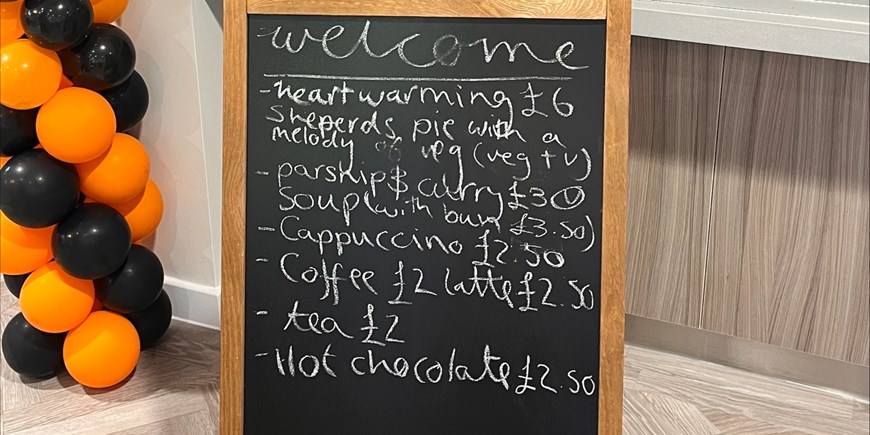 welcome
- heartwarming £6
sheperds pie with a
melody of veg (veg + v)
- parship & curry £3
soup (with bun £3.50)
- Cappuccino £2.50
- Coffee £2 latte £2.50
- tea £2
- Hot chocolate £2.50